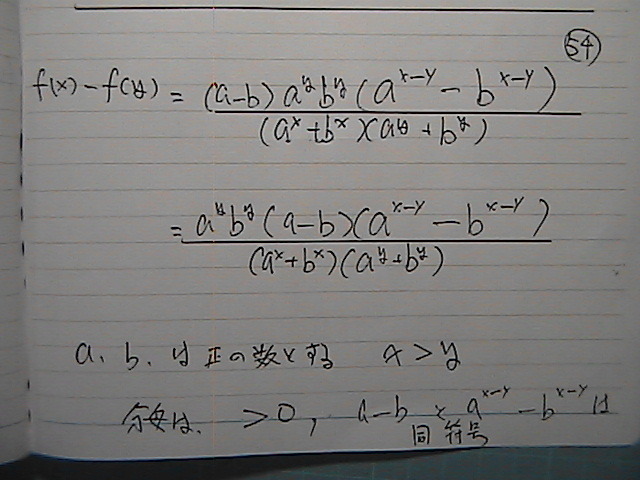 54
f(x)-f(y) = (a-b)a^y b^y(a^{x-y} - b^{x-y}) / (a^x+b^x)(a^y+b^y)
= a^y b^y(a-b)(a^{x-y} - b^{x-y}) / (a^x+b^x)(a^y+b^y)
a、b、は正の数とする x>y
分母は、 >0, a-bとa^{x-y} - b^{x-y}は
同符号